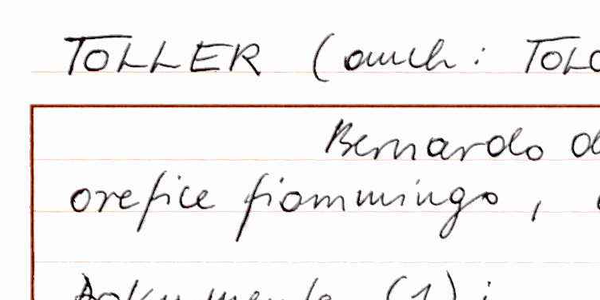 TOLLER (auch: TOLO
Bernardo d
orefice fiammingo,
Dokumente (1):